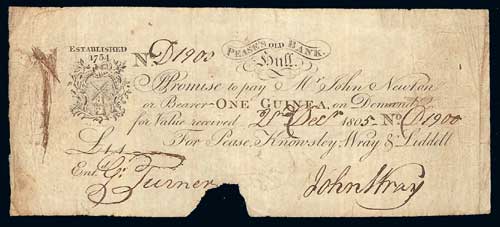 ESTABLISHED
1754
No. D1900
PEASE'S OLD BANK.
Hull.
I Promise to pay Mr. John Newton
or Bearer ONE GUINEA, on Demand
for Value received Decr. 1805 No. D1900
For Pease, Knowsley Wray & Liddell
£1,,1
Ent. G. Turner
John Wray